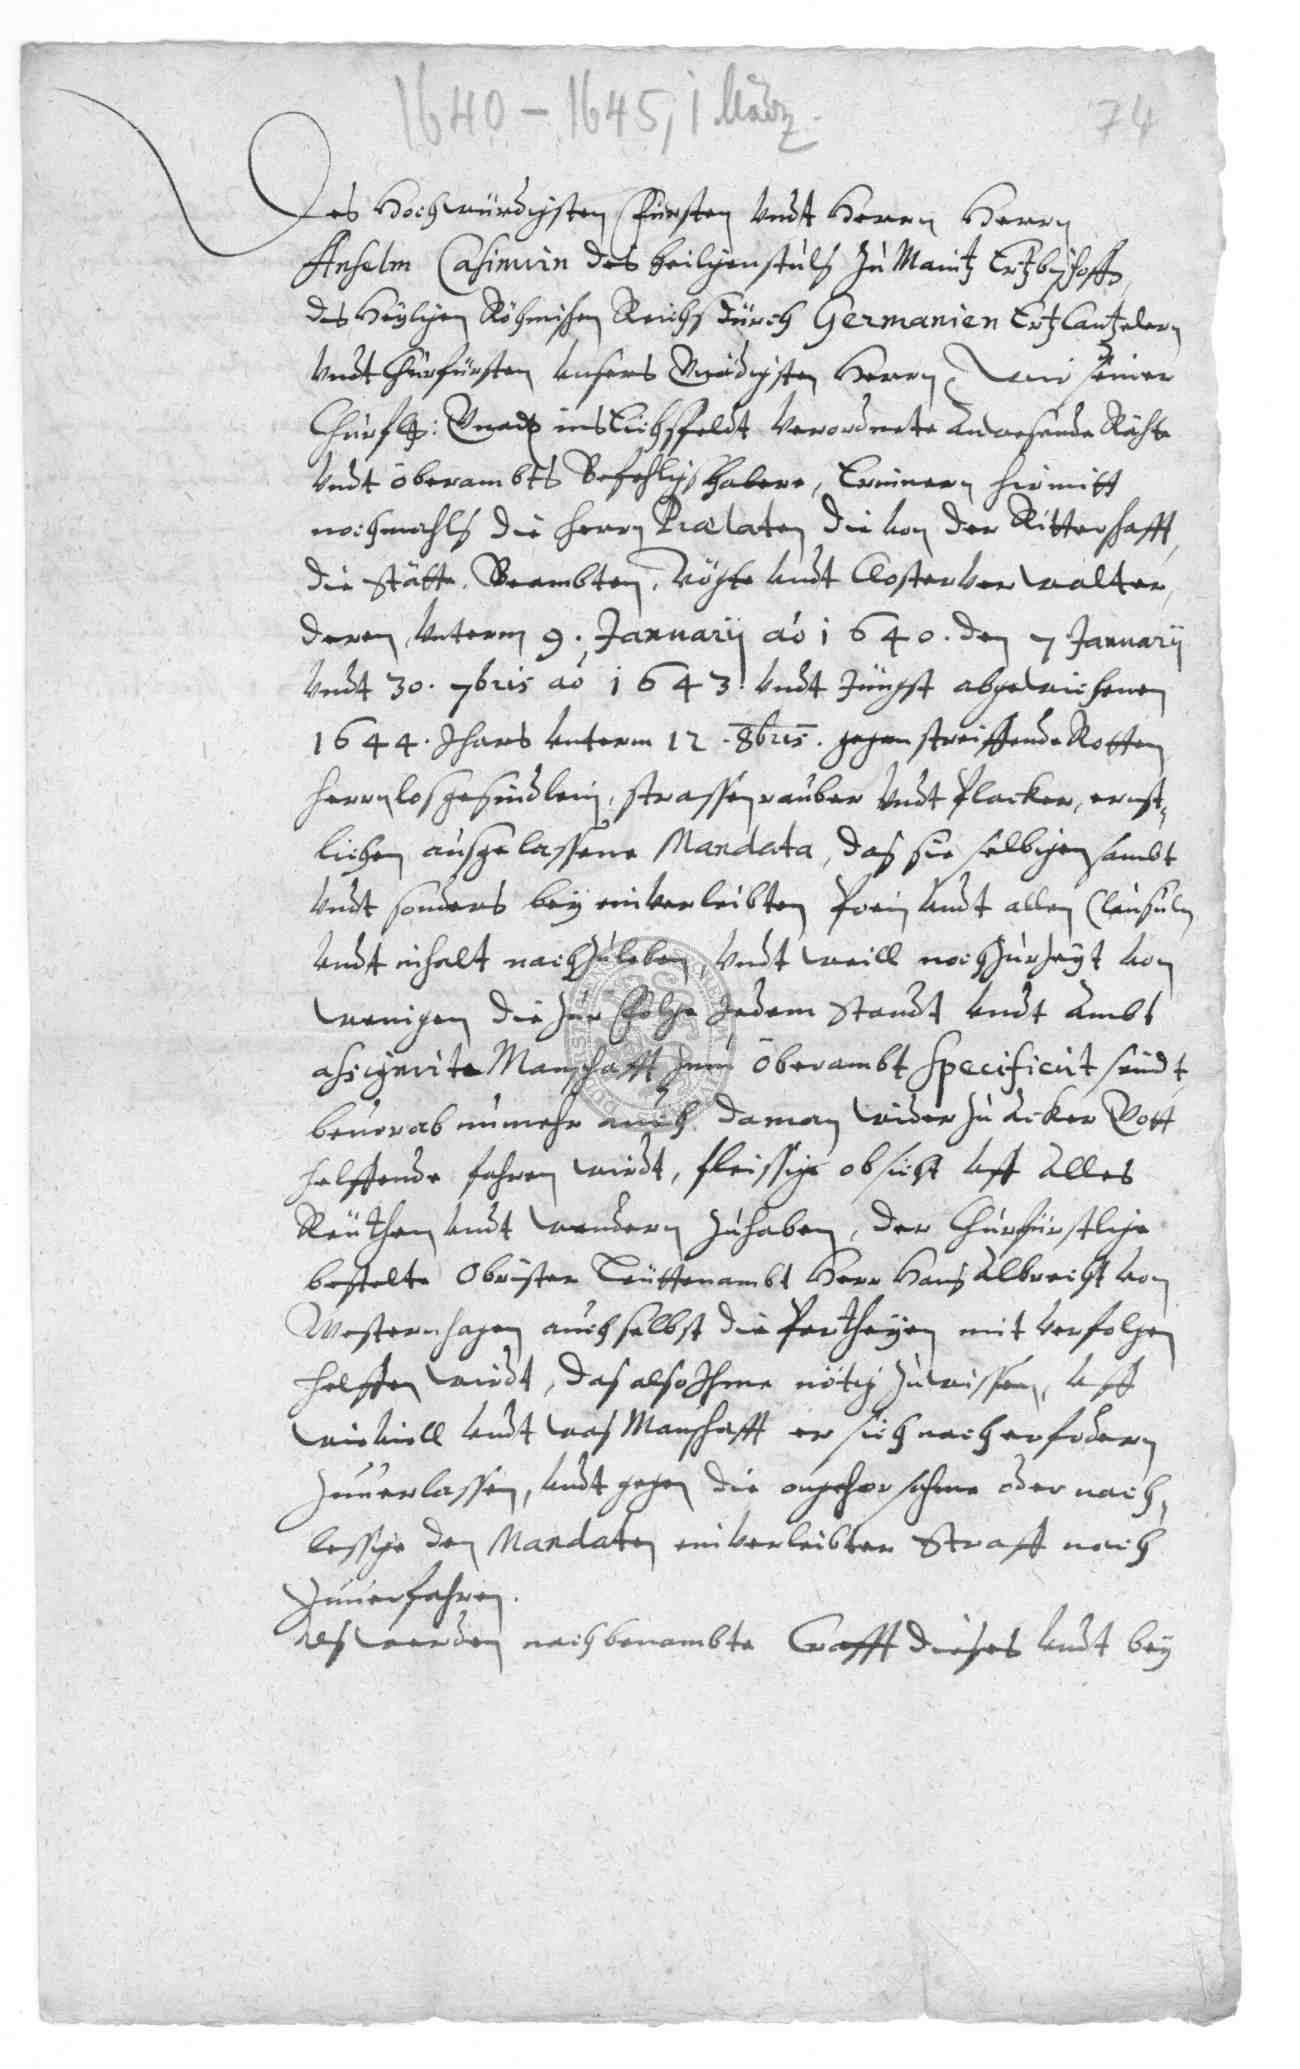 1640 – 1645, 1 März.
74
Des Hochwürdigsten Fürsten Undt Herrn Herrn
Anselm Casimirn des heiligen stuls zu Maintz Ertzbischoffs,
des Heyligen Röhmischen Reichs durch Germanien Ertz Cantzelern
Undt Churfürsten unsers Gnädigsten Herrn, Wir seiner
Churfl: Gnad ins Eichsfeldt verordnete anwesende Räthe
Undt öberambts Befehlighabere, Erinnern hirmitt
nochmahls die herrn Praelaten die von der Ritterschafft,
die Stätte, Beambten, Vögte undt Closterverwalter,
deren, unterm 9. Januarij aō 1640. den 7 Januarij
Undt 30. 7bris aō 1643. undt Jüngst abgewichenen
1644. Jhars unterm 12. 8bris. gegen streiffende Rotten
herrnlosgesindlein, strassenrauber Undt Placker, ernst-
lichen aufgelassene Mandata, das sie selbigen sambt
Undt sonders bey einverleibten Poen undt allen Clausuln
undt inhalt nachzuleben, Undt weill noch zur zeyt von
wenigen die zur Folge Jedem Standt undt Ambt
assignirte Manschafft zum Öberambt specificirt seindt,
bevorab numehr auch daman wider zu acker Gott
helffende fahren wirdt, fleissige obsicht uff alles
Reuthen undt wandern zuhaben, der Churfürstlige
bestelte Obrister Leüttenambt Herr Hans Albrecht von
Westernhagen auch selbst die Partheyen mit verfolgen
helffen wirdt, das also Ihme nötig zuwissen, uff
wieviell undt was Manschafft er sich nach erfodern
zuuerlassen, undt gegen die ongehorsahme oder nach-
lessige den Mandaten einverleibter Straff nach
zuuerfahren.
Als werden nachbenambte Crafft dieses undt bey